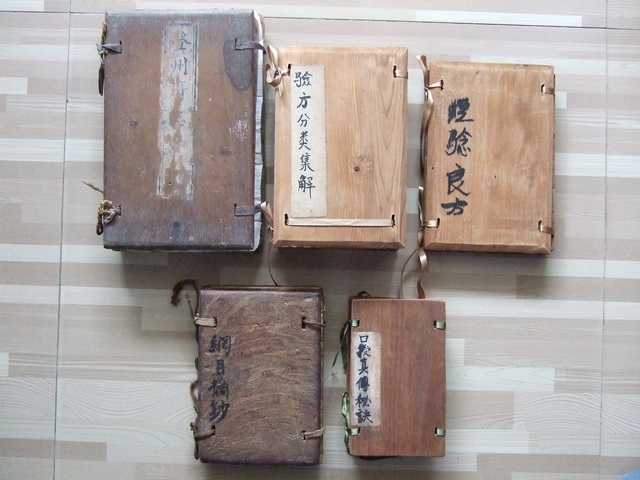 驗方分类集解
經驗良方
綱目摘鈔
口授真傳秘訣